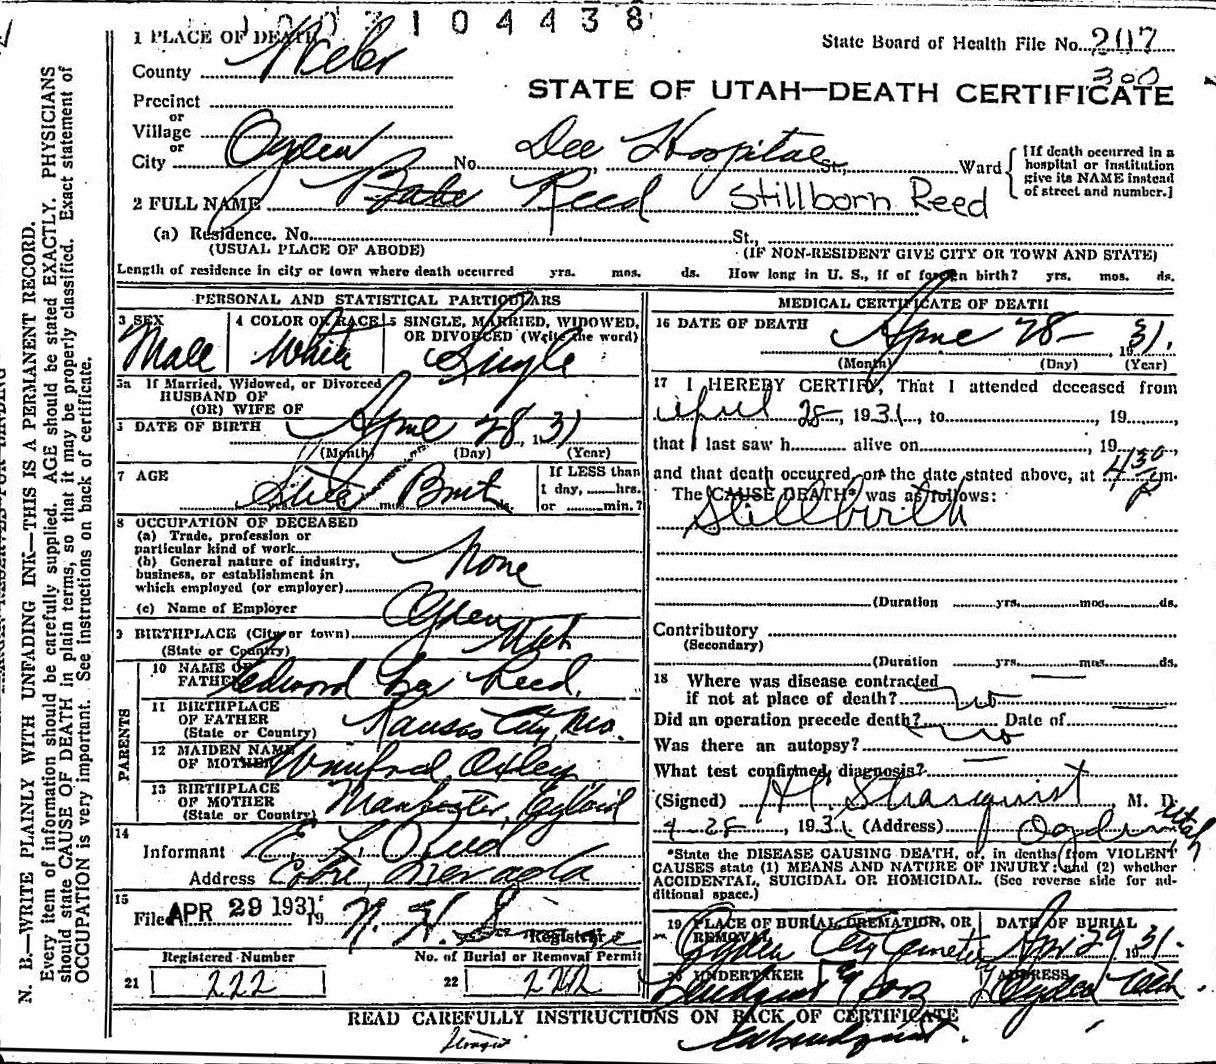 1007104438
1 PLACE OF DEATH
State Board of Health File No. 207
County Weber
300
STATE OF UTAH—DEATH CERTIFICATE
Precinct
or
Village
or
City Ogden No. Dee Hospital St., Ward
[If death occurred in a hospital or institution give its NAME instead of street and number.]
2 FULL NAME Babe Reed Stillborn Reed
(a) Residence. No. St.,
(USUAL PLACE OF ABODE) (IF NON-RESIDENT GIVE CITY OR TOWN AND STATE)
Length of residence in city or town where death occurred yrs. mos. ds. How long in U. S., if of foreign birth? yrs. mos. ds.
PERSONAL AND STATISTICAL PARTICULARS
3 SEX
Male
4 COLOR OR RACE
White
5 SINGLE, MARRIED, WIDOWED,
OR DIVORCED (Write the word)
Single
5a If Married, Widowed, or Divorced
HUSBAND OF
(OR) WIFE OF
DATE OF BIRTH April 28, 1931
(Month) (Day) (Year)
7 AGE
Still Birth
yrs. mos. ds.
If LESS than
1 day, hrs.
or min.?
8 OCCUPATION OF DECEASED
(a) Trade, profession or
particular kind of work
(b) General nature of industry,
business, or establishment in
which employed (or employer)
None
(c) Name of Employer
9 BIRTHPLACE (City or town) Ogden
(State or Country) Utah
PARENTS
10 NAME OF
FATHER Edward Reed
11 BIRTHPLACE
OF FATHER
(State or Country) Kansas City, Mo.
12 MAIDEN NAME
OF MOTHER Winifred Oxley
13 BIRTHPLACE
OF MOTHER
(State or Country) Manchester, England
14
Informant E. L. Reed
Address Cobre, Nevada
15
Filed APR 29 1931 19 N. H.
Registrar
Registered Number
21 222
No. of Burial or Removal Permit
22 222
MEDICAL CERTIFICATE OF DEATH
16 DATE OF DEATH April 28 1931.
(Month) (Day) (Year)
17 I HEREBY CERTIFY, That I attended deceased from
April 28, 1931, to , 19
that I last saw h alive on , 19
and that death occurred, on the date stated above, at 4:30 P m.
The CAUSE DEATH* was as follows:
Stillbirth
(Duration yrs. mos. ds.
Contributory
(Secondary)
(Duration yrs. mos. ds.
18 Where was disease contracted
if not at place of death?
Did an operation precede death? no Date of
Was there an autopsy? no
What test confirmed diagnosis?
(Signed) H. Stranquist, M. D.
4-28, 1931 (Address) Ogden Utah
*State the DISEASE CAUSING DEATH, or, in deaths from VIOLENT
CAUSES state (1) MEANS AND NATURE OF INJURY: and (2) whether
ACCIDENTAL, SUICIDAL OR HOMICIDAL. (See reverse side for ad-
ditional space.)
19 PLACE OF BURIAL, CREMATION, OR
REMOVAL
Ogden City Cemetery
DATE OF BURIAL
Apr 29, 1931
20 UNDERTAKER
Lindquist & Sons
ADDRESS
Ogden Utah
READ CAREFULLY INSTRUCTIONS ON BACK OF CERTIFICATE
Lindquist.
N. B.—WRITE PLAINLY WITH UNFADING INK—THIS IS A PERMANENT RECORD.
Every item of information should be carefully supplied. AGE should be stated EXACTLY. PHYSICIANS
should state CAUSE OF DEATH in plain terms, so that it may be properly classified. Exact statement of
OCCUPATION is very important. See instructions on back of certificate.